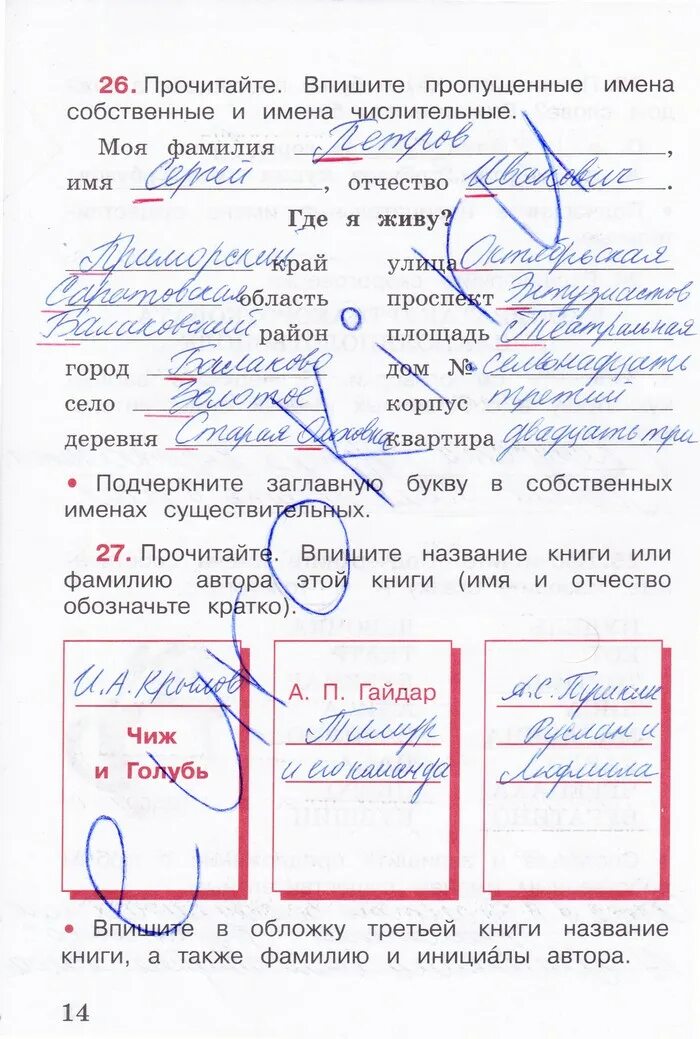 26. Прочитайте. Впишите пропущенные имена
собственные и имена числительные.
Моя фамилия Петров,
имя Сергей, отчество Иванович.
Где я живу?
Приморский край улица Октябрьская
Саратовская область проспект Энтузиастов
Балаковский район площадь Театральная
город Балаково дом № семьнадцать
село Золотое корпус третий
деревня Старая Ольховка квартира двадцать три
• Подчеркните заглавную букву в собственных
именах существительных.
27. Прочитайте. Впишите название книги или
фамилию автора этой книги (имя и отчество
обозначьте кратко).
И.А. Крылов
Чиж
и Голубь
А. П. Гайдар
Тимур
и его команда
А.С. Пушкин
Руслан и
Людмила
• Впишите в обложку третьей книги название
книги, а также фамилию и инициа́лы автора.
14